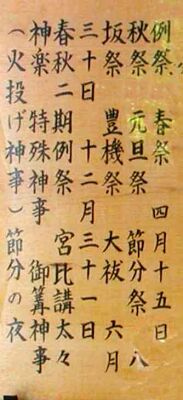 例祭　春祭　四月十五日
秋祭　元旦祭　節分祭　八
坂祭　豊機祭　大祓　六月
三十日　十二月三十一日
春秋二期例祭　宮比講太々
神楽　特殊神事　御篝神事
（火投げ神事）節分の夜